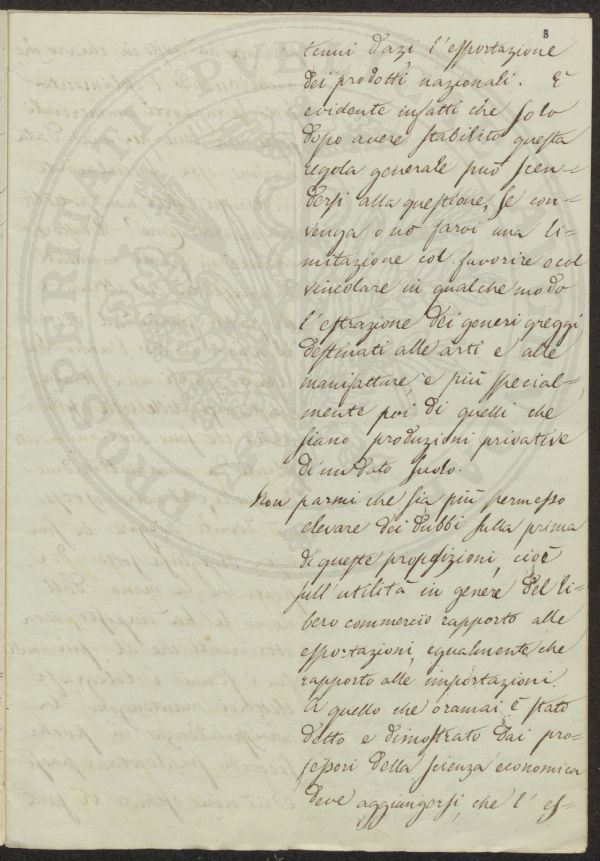 8
tenui dazi l'esportazione
dei prodotti nazionali. È
evidente infatti che solo
dopo avere stabilito questa
regola generale può scen-
dersi alla questione, se con-
venga o nò farvi una li-
mitazione col favorire o col
vincolare in qualche modo
l'estrazione dei generi greggi
destinati alle arti e alle
manifatture, e più special-
mente poi di quelli che
siano produzioni privative
di un dato suolo.
Non parmi che sia più permesso
elevare dei dubbi sulla prima
di queste proposizioni, cioè
sull'utilità in genere del li-
bero commercio rapporto alle
esportazioni, egualmente che
rapporto alle importazioni.
A quello che oramai è stato
detto e dimostrato dai pro-
fessori della scienza economica
deve aggiungersi, che l'es-